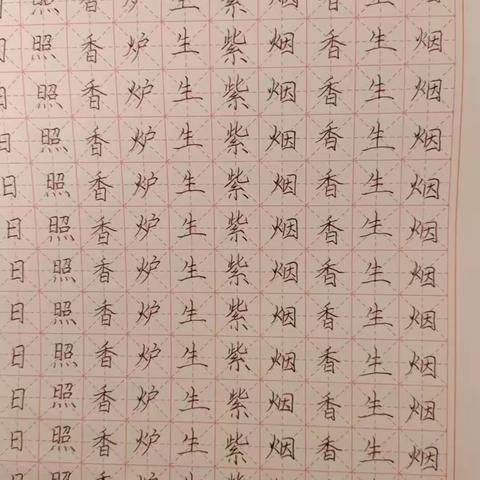 日照香炉生紫烟香生烟
日照香炉生紫烟香生烟
日照香炉生紫烟香生烟
日照香炉生紫烟香生烟
日照香炉生紫烟香生烟
日照香炉生紫烟香生烟
日照香炉生紫烟香生烟
日照香炉生紫烟香生烟
日照香炉生紫烟香生烟
日照香炉生紫烟香生烟